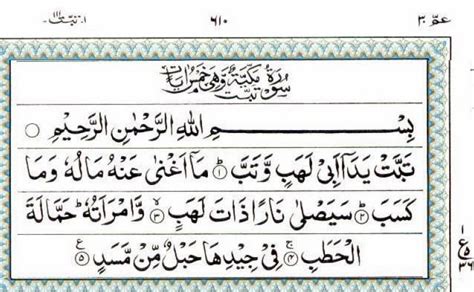 عمّ ٣٠ ٦١٠ تبّت ١١١
سُوْرَةُ تَبَّتْ مَكِّيَّةٌ وَّهِيَ خَمْسُ اٰيَاتٍ
بِسْمِ اللهِ الرَّحْمٰنِ الرَّحِيْمِ ○
تَبَّتْ يَدَآ اَبِيْ لَهَبٍ وَّتَبَّ ۝١ مَآ اَغْنٰى عَنْهُ مَالُهٗ وَمَا
كَسَبَ ۝٢ سَيَصْلٰى نَارًا ذَاتَ لَهَبٍ ۝٣ وَّامْرَاَتُهٗ ؕ حَمَّالَةَ
الْحَطَبِ ۝٤ فِيْ جِيْدِهَا حَبْلٌ مِّنْ مَّسَدٍ ۝٥
١
ع
٥
٣٦